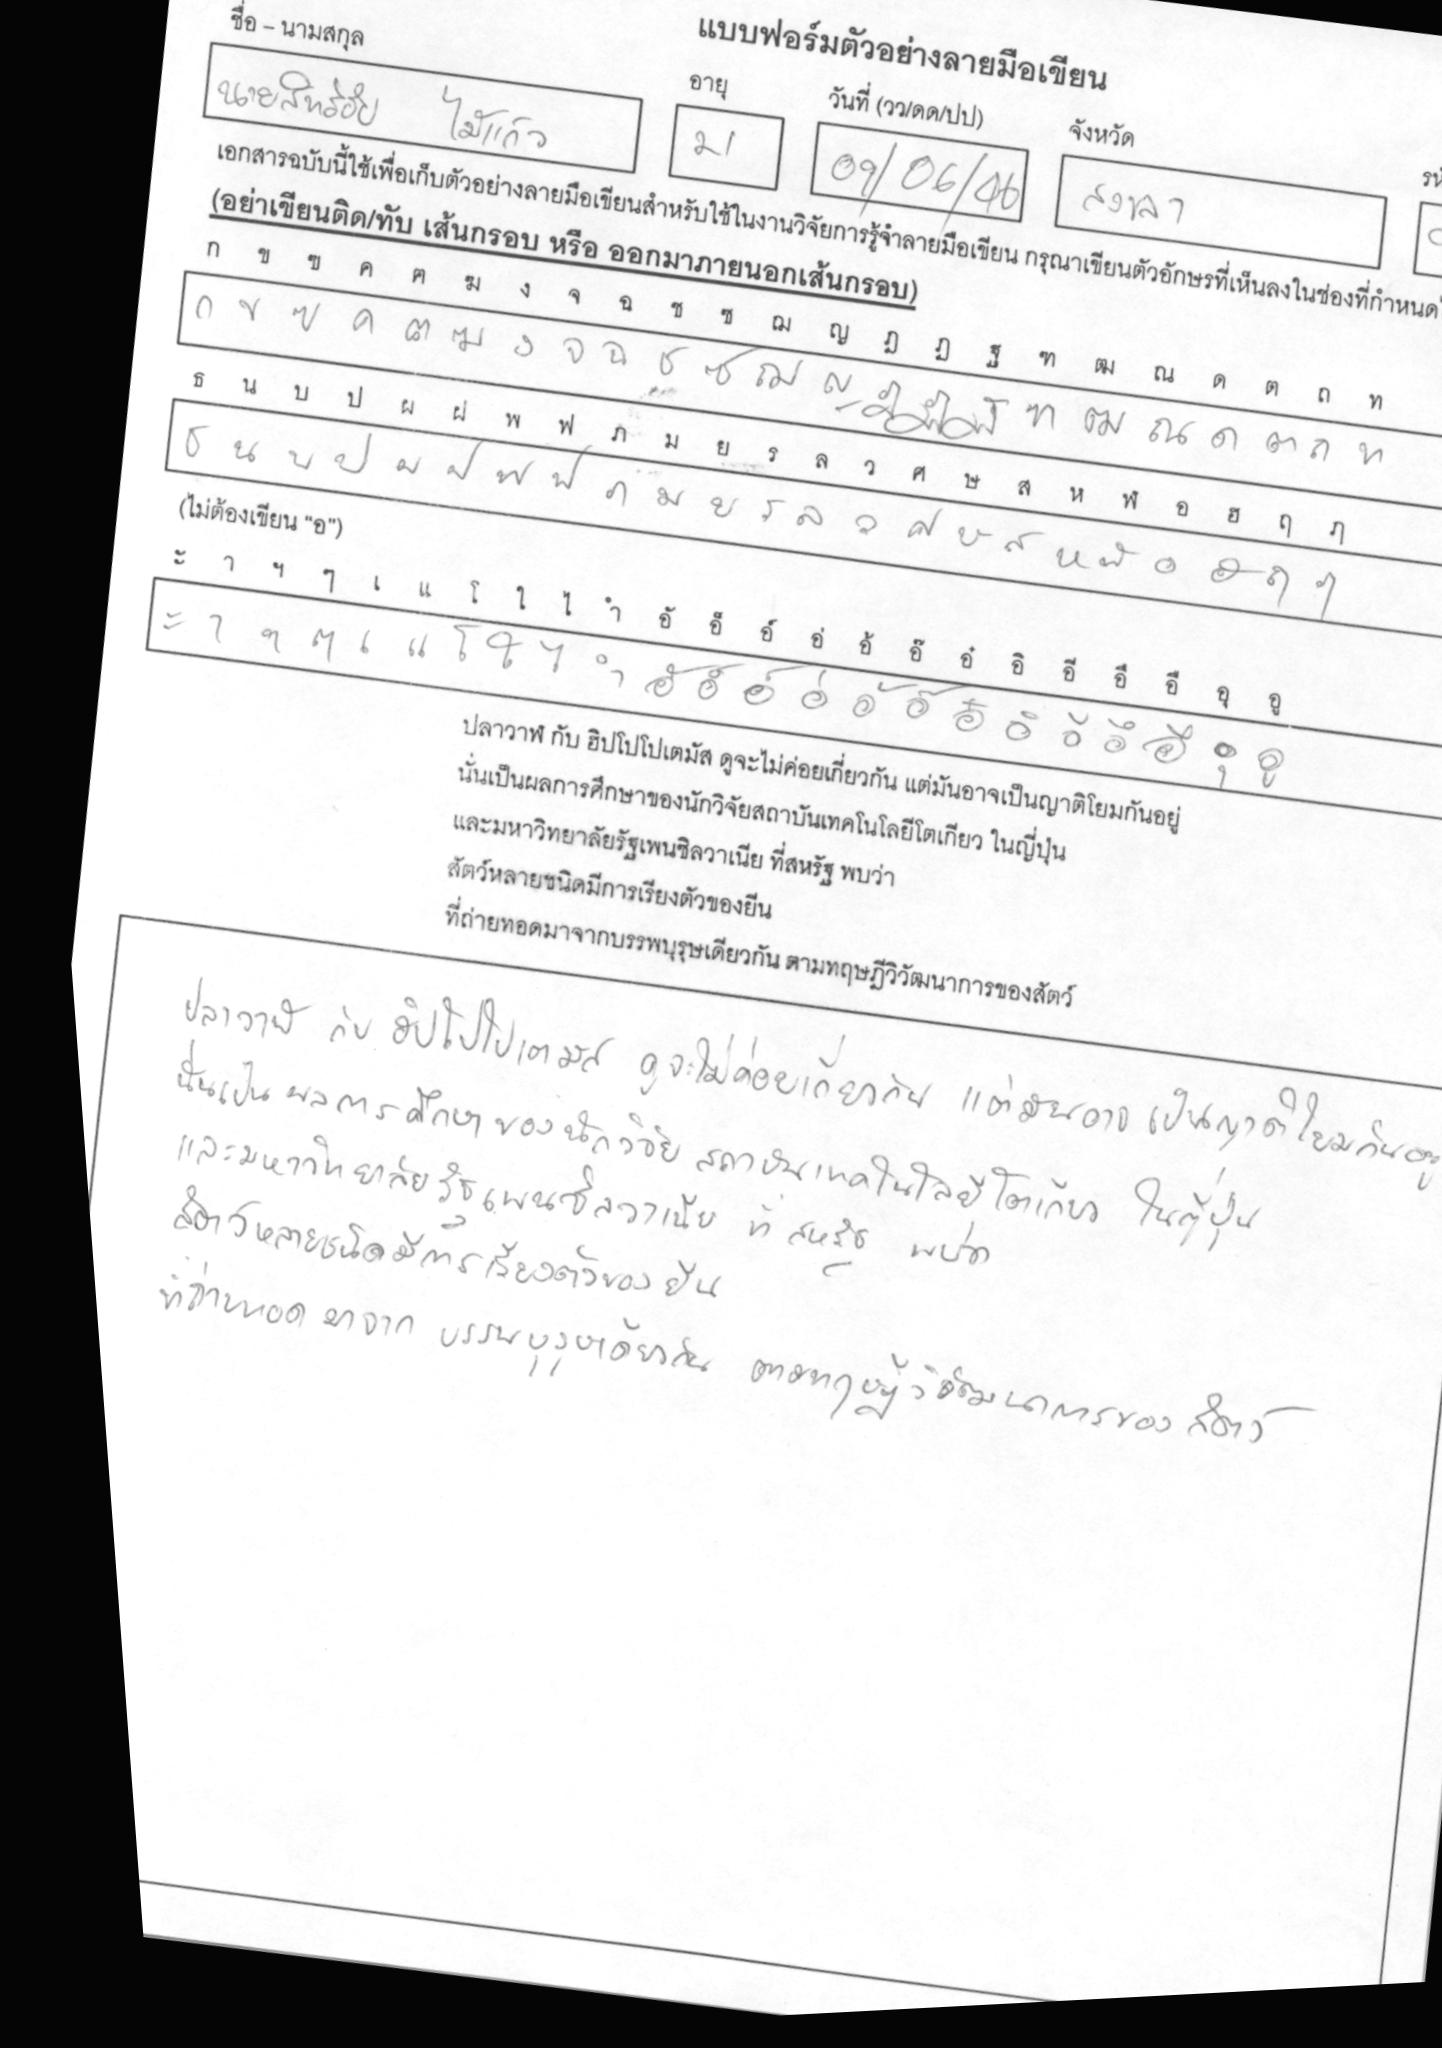 แบบฟอร์มตัวอย่างลายมือเขียน
ชื่อ – นามสกุล อายุ วันที่ (วว/ดด/ปป) จังหวัด
ไม้แก้ว 09/06/46 สงขลา
เอกสารฉบับนี้ใช้เพื่อเก็บตัวอย่างลายมือเขียนสำหรับใช้ในงานวิจัยการรู้จำลายมือเขียน กรุณาเขียนตัวอักษรที่เห็นลงในช่องที่กำหนด
(อย่าเขียนติด/ทับ เส้นกรอบ หรือ ออกมาภายนอกเส้นกรอบ)
ก ข ฃ ค ฅ ฆ ง จ ฉ ช ซ ฌ ญ ฎ ฏ ฐ ฑ ฒ ณ ด ต ถ ท
ก ข ฃ ค ฅ ฆ ง จ ฉ ช ซ ฌ ญ ฎ ฏ ฐ ฑ ฒ ณ ด ต ถ ท
ธ น บ ป ผ ฝ พ ฟ ภ ม ย ร ล ว ศ ษ ส ห ฬ อ ฮ ฤ ฦ
ธ น บ ป ผ ฝ พ ฟ ภ ม ย ร ล ว ศ ษ ส ห ฬ อ ฮ ฤ ฦ
(ไม่ต้องเขียน "อ")
ะ า ฯ ๆ เ แ โ ใ ไ ำ อั อ็ อ์ อ่ อ้ อ๊ อ๋ อิ อี อึ อื อุ อู
ะ า ฯ ๆ เ แ โ ใ ไ ำ อั อ็ อ์ อ่ อ้ อ๊ อ๋ อิ อี อึ อื อุ อู
ปลาวาฬ กับ ฮิปโปโปเตมัส ดูจะไม่ค่อยเกี่ยวกัน แต่มันอาจเป็นญาติโยมกันอยู่
นั่นเป็นผลการศึกษาของนักวิจัยสถาบันเทคโนโลยีโตเกียว ในญี่ปุ่น
และมหาวิทยาลัยรัฐเพนซิลวาเนีย ที่สหรัฐ พบว่า
สัตว์หลายชนิดมีการเรียงตัวของยีน
ที่ถ่ายทอดมาจากบรรพบุรุษเดียวกัน ตามทฤษฎีวิวัฒนาการของสัตว์
ปลาวาฬ กับ ฮิปโปโปเตมัส ดูจะไม่ค่อยเกี่ยวกัน แต่มันอาจ เป็นญาติโยมกันอยู่
นั่นเป็น ผลการศึกษาของนักวิจัย สถาบันเทคโนโลยีโตเกียว ในญี่ปุ่น
และมหาวิทยาลัยรัฐเพนซิลวาเนีย ที่ สหรัฐ พบว่า
สัตว์หลายชนิดมีการเรียงตัวของ ยีน
ที่ถ่ายทอด มาจาก บรรพบุรุษเดียวกัน ตามทฤษฎีวิวัฒนาการของ สัตว์